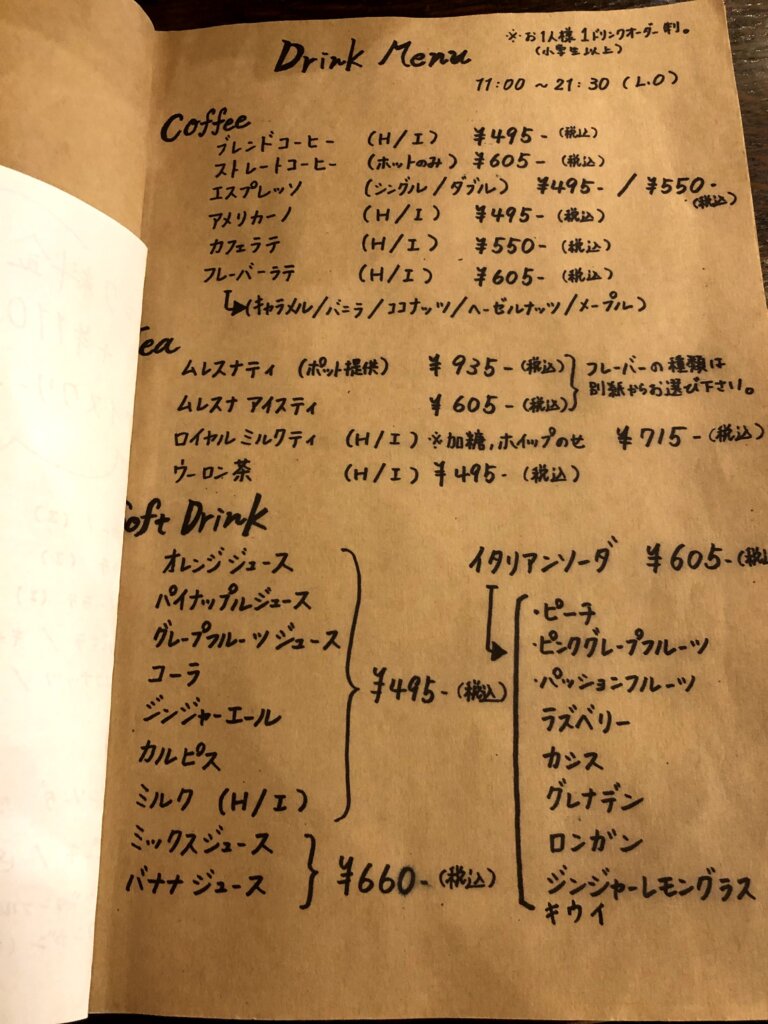 Drink Menu
※お1人様1ドリンクオーダー制。
(小学生以上)
11:00 ~ 21:30 (L.O)
Coffee
ブレンドコーヒー (H/I) ¥495- (税込)
ストレートコーヒー (ホットのみ) ¥605- (税込)
エスプレッソ (シングル/ダブル) ¥495- / ¥550- (税込)
アメリカーノ (H/I) ¥495- (税込)
カフェラテ (H/I) ¥550- (税込)
フレーバーラテ (H/I) ¥605- (税込)
(キャラメル/バニラ/ココナッツ/ヘーゼルナッツ/メープル)
Tea
ムレスナティ (ポット提供) ¥935- (税込)
ムレスナ アイスティ ¥605- (税込)
フレーバーの種類は
別紙からお選び下さい。
ロイヤルミルクティ (H/I) ※加糖,ホイップのせ ¥715- (税込)
ウーロン茶 (H/I) ¥495- (税込)
Soft Drink
オレンジジュース
パイナップルジュース
グレープフルーツジュース
コーラ
ジンジャーエール
カルピス
ミルク (H/I)
¥495- (税込)
ミックスジュース
バナナジュース
¥660- (税込)
イタリアンソーダ ¥605- (税込
・ピーチ
・ピンクグレープフルーツ
・パッションフルーツ
ラズベリー
カシス
グレナデン
ロンガン
ジンジャーレモングラス
キウイ